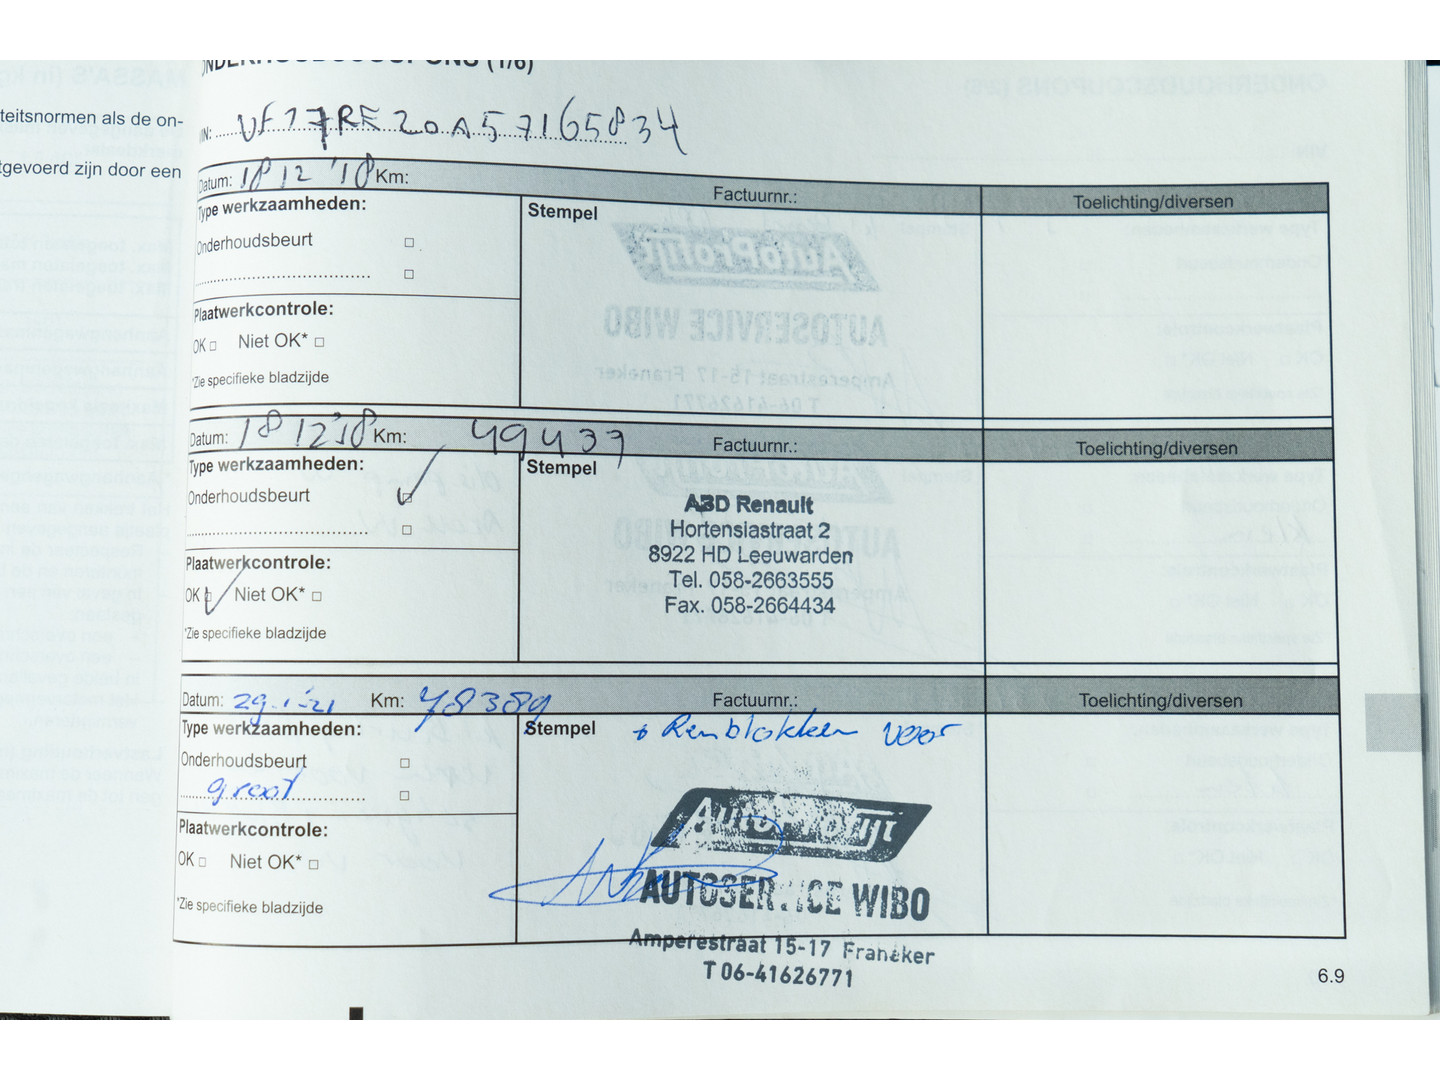 teitsnormen als de on-
tgevoerd zijn door een
ONDERHOUDSCOUPONS (1/6)
VIN: VF17RE20A57165834
Datum: 18 12 '18 Km: Factuurnr.: Toelichting/diversen
Type werkzaamheden: Stempel
Onderhoudsbeurt □
.......................................... □
Plaatwerkcontrole:
OK □ Niet OK* □
*Zie specifieke bladzijde
Datum: 18 12'18 Km: 49437 Factuurnr.: Toelichting/diversen
Type werkzaamheden: Stempel
Onderhoudsbeurt □
.......................................... □
Plaatwerkcontrole:
OK □ Niet OK* □
*Zie specifieke bladzijde
ABD Renault
Hortensiastraat 2
8922 HD Leeuwarden
Tel. 058-2663555
Fax. 058-2664434
Datum: 29-1-'21 Km: 78389 Factuurnr.: Toelichting/diversen
Type werkzaamheden: Stempel + Remblokken voor
Onderhoudsbeurt □
groot □
Plaatwerkcontrole:
OK □ Niet OK* □
*Zie specifieke bladzijde
AutoProfijt
AUTOSERVICE WIBO
Amperestraat 15-17 Franeker
T 06-41626771
6.9